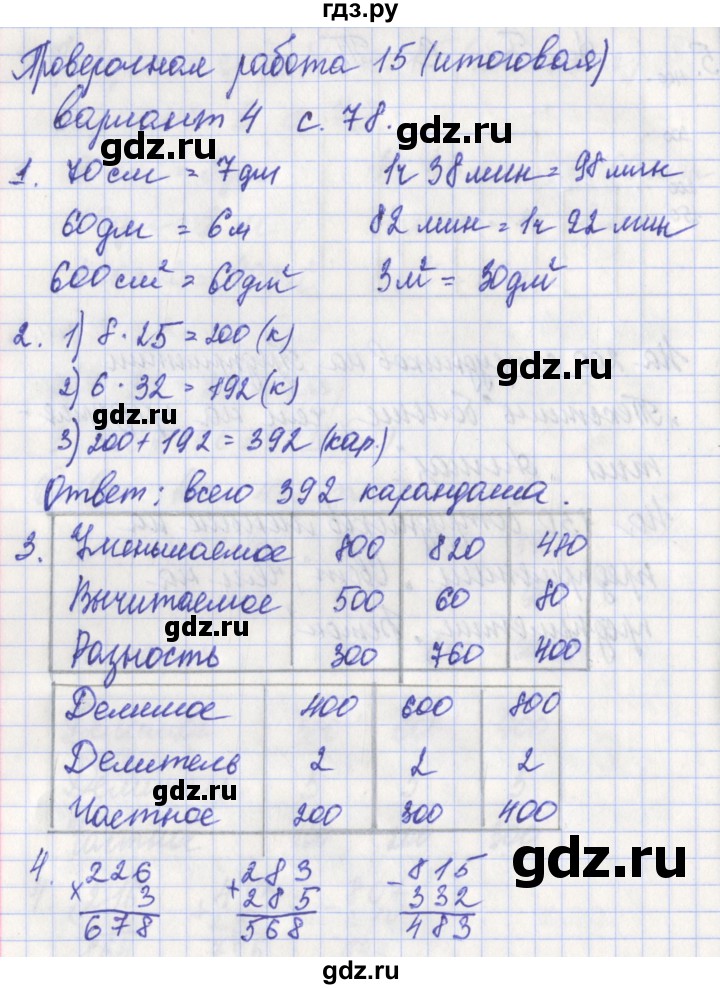 гдз.ру
Проверочная работа 15 (итоговая)
вариант 4 с. 78.
gdz.ru
1. 70 см = 7 дм 1ч 38 мин = 98 мин
gdz.ru
60 дм = 6 м 82 мин = 1ч 22 мин
600 см² = 60 дм² 3 м² = 30 дм²
gdz.ru
2. 1) 8 · 25 = 200 (к)
2) 6 · 32 = 192 (к)
gdz.ru
3) 200 + 192 = 392 (кар.)
Ответ: всего 392 карандаша.
gdz.ru
3. Уменьшаемое 800 820 480
Вычитаемое 500 60 80
gdz.ru
Разность 300 760 400
Делимое 400 600 800
Делитель 2 2 2
gdz.ru
Частное 200 300 400
gdz.ru
4. × 226 + 283 - 815
3 285 332
gdz.ru
678 568 483
gdz.ru